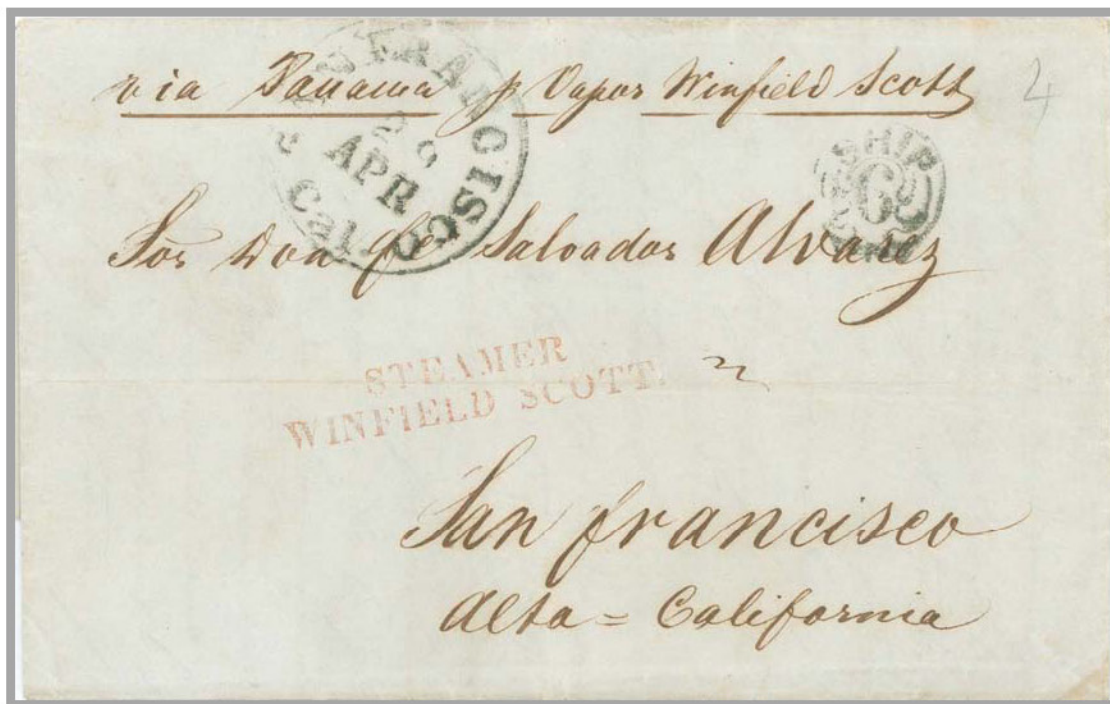 via Panama p Vapor Winfield Scott
4
SAN FRANCISCO
APR
Cal.
SHIP
6
Sor Don Je Salvador Alvarez
STEAMER
WINFIELD SCOTT.
San francisco
Alta = California